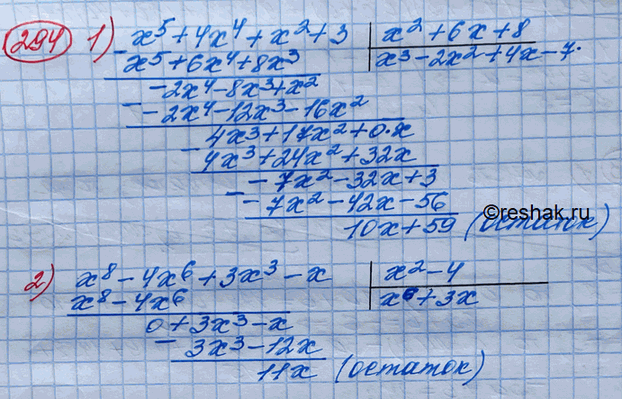 294 1) x⁵+4x⁴+x²+3 | x²+6x+8
- x⁵+6x⁴+8x³ | x³-2x²+4x-7.
-2x⁴-8x³+x²
- -2x⁴-12x³-16x²
4x³+17x²+0·x
- 4x³+24x²+32x
-7x²-32x+3
- -7x²-42x-56
10x+59 (остаток)
©reshak.ru
2) x⁸-4x⁶+3x³-x | x²-4
x⁸-4x⁶ | x⁶+3x
0+3x³-x
- 3x³-12x
11x (остаток)